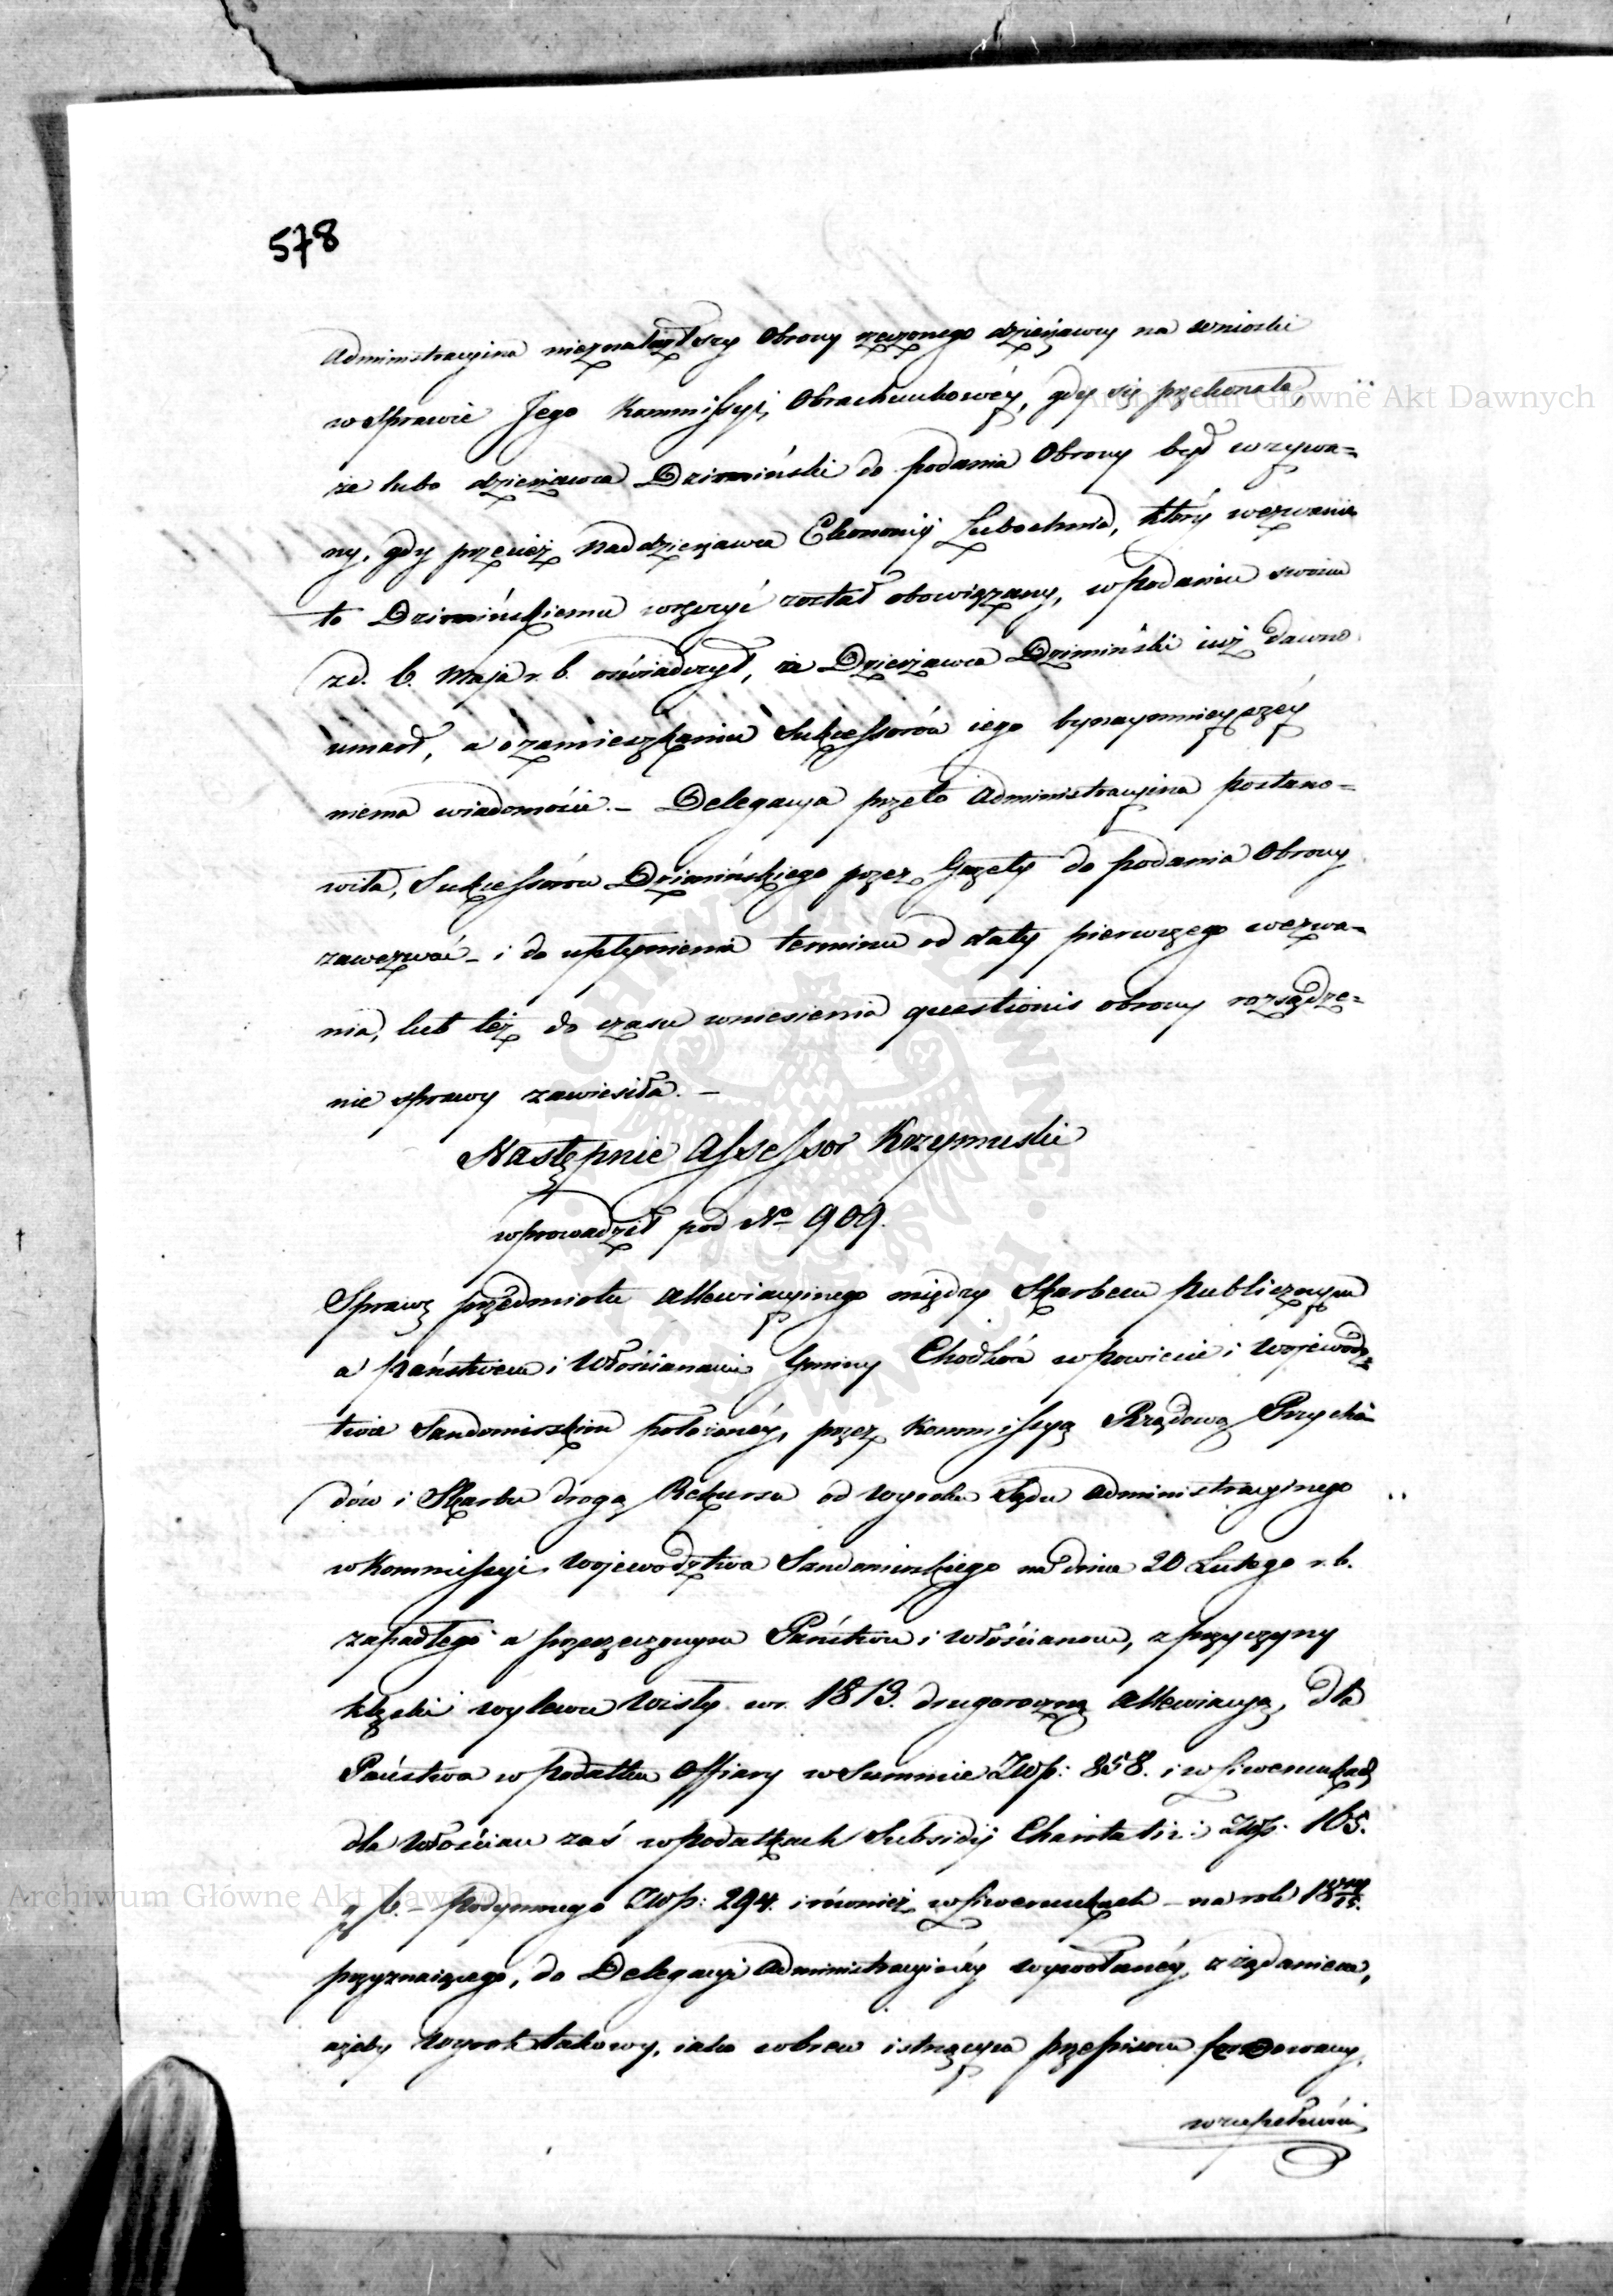 578
Administracyina nieznalazłszy Obrony rzeczonego dzierżawcy na wnioski
w sprawie Jego Kommissyi Obrachunkowéy, gdy się przekonała,
że lubo dzierżawca Dzimiński do podania Obrony był wzywa=
ny, gdy przecież Naddzierżawca Ekonomij Lubochnia, który wezwanie
to Dzimińskiemu wręczyć został obowiązany, w podaniu swoim
z d. 6. Maja r. b. oświadczył, że Dzierżawca Dzimiński iuż dawno
umarł, a o zamieszkaniu Sukcessorów iego bynaymniéy
niema wiadomości. – Delegacya przeto Administracyina postano=
wiła, Sukcessorów Dzimińskiego przez Gazety do podania Obrony
zawezwać – i do upłynienia terminu od daty pierwszego wezwa=
nia, lub też do czasu wniesienia questionis obrony rozsądze=
nie sprawy zawiesiła. –
Następnie Assessor Krzymuski
wprowadził pod No 909.
Sprawę przedmiotu Allewiacyinego między Skarbem Publicznym
a Państwem i Włościanami Gminy Chodków w Powiecie i Wojewódz=
twie Sandomirskim położonéy, przez Kommissyą Rządową Przycho=
dów i Skarbu drogą Rekursu od Wyroku Sądu Administracyinego
w Kommissyi Województwa Sandomirskiego na dniu 20 Lutego r. b.
zapadłego a przerzeczonym Państwu i Włościanom, z przyczyny
klęski wylewu Wisły w r. 1813. drugoroczną Allewiacyą, dla
Państwa w podatku Offiary w Summie Złp: 858. i w liwerunkach,
dla Włościan zaś w podatkach Subsidij Charitativi: Złp. 165.
g 6. – Podymnego Złp: 294. i również w liwerunkach – na rok 18 14/15.
przyznaiącego, do Delegacyi Administracyinéy wywołanéy, z żądaniem,
ażeby Wyrok takowy, iako wbrew istnącym przepisom ferowany,
w zupełności
Archiwum Główne Akt Dawnych
Archiwum Główne Akt Dawnych